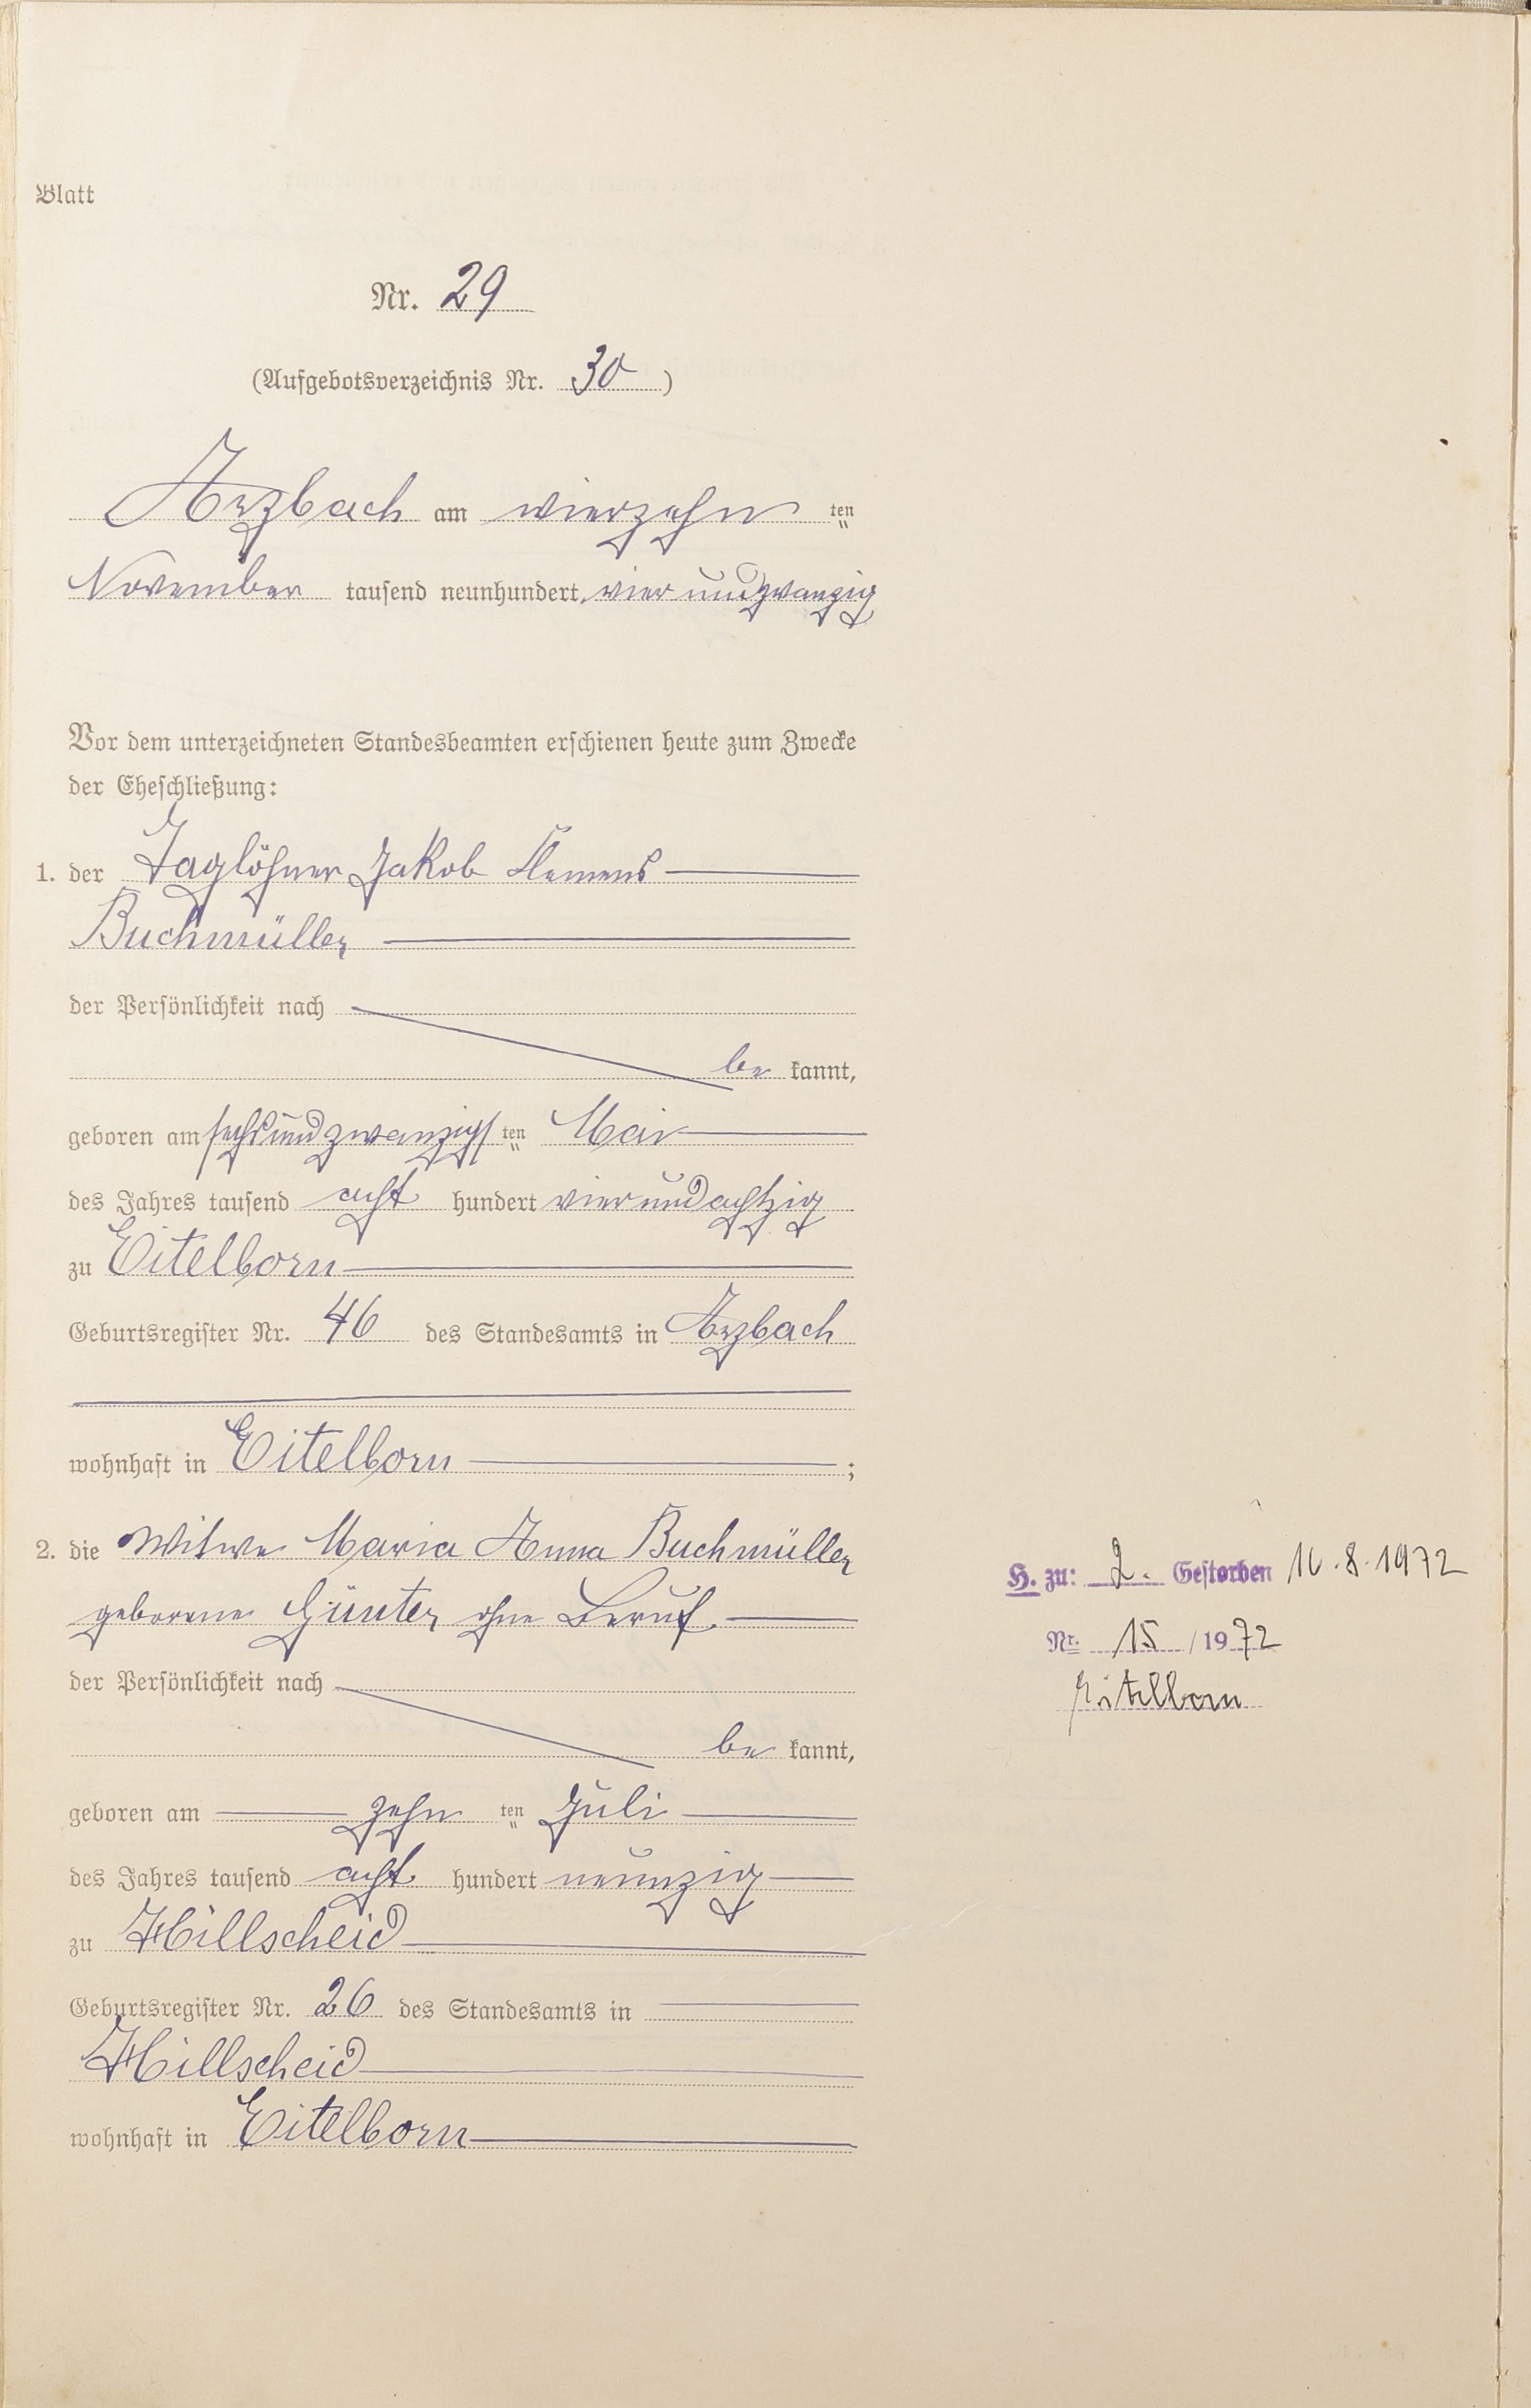 Blatt
Nr. 29
(Aufgebotsverzeichnis Nr. 30)
Arzbach am vierzehn ten
November tausend neunhundert vier und zwanzig
Vor dem unterzeichneten Standesbeamten erschienen heute zum Zwecke
der Eheschließung:
1. der Taglöhner Jakob Klemens
Buchmüller
der Persönlichkeit nach
be kannt,
geboren am sechsundzwanzigs ten Mai
des Jahres tausend acht hundert vierundachtzig
zu Eitelborn
Geburtsregister Nr. 46 des Standesamts in Arzbach
wohnhaft in Eitelborn ;
2. die Witwe Maria Anna Buchmüller
geborene Günter ohne Beruf
der Persönlichkeit nach
be kannt,
geboren am zehn ten Juli
des Jahres tausend acht hundert neunzig
zu Hillscheid
Geburtsregister Nr. 26 des Standesamts in
Hillscheid
wohnhaft in Eitelborn
H. zu: 2. Gestorben 10.8.1972
Nr. 15 / 1972
Eitelborn